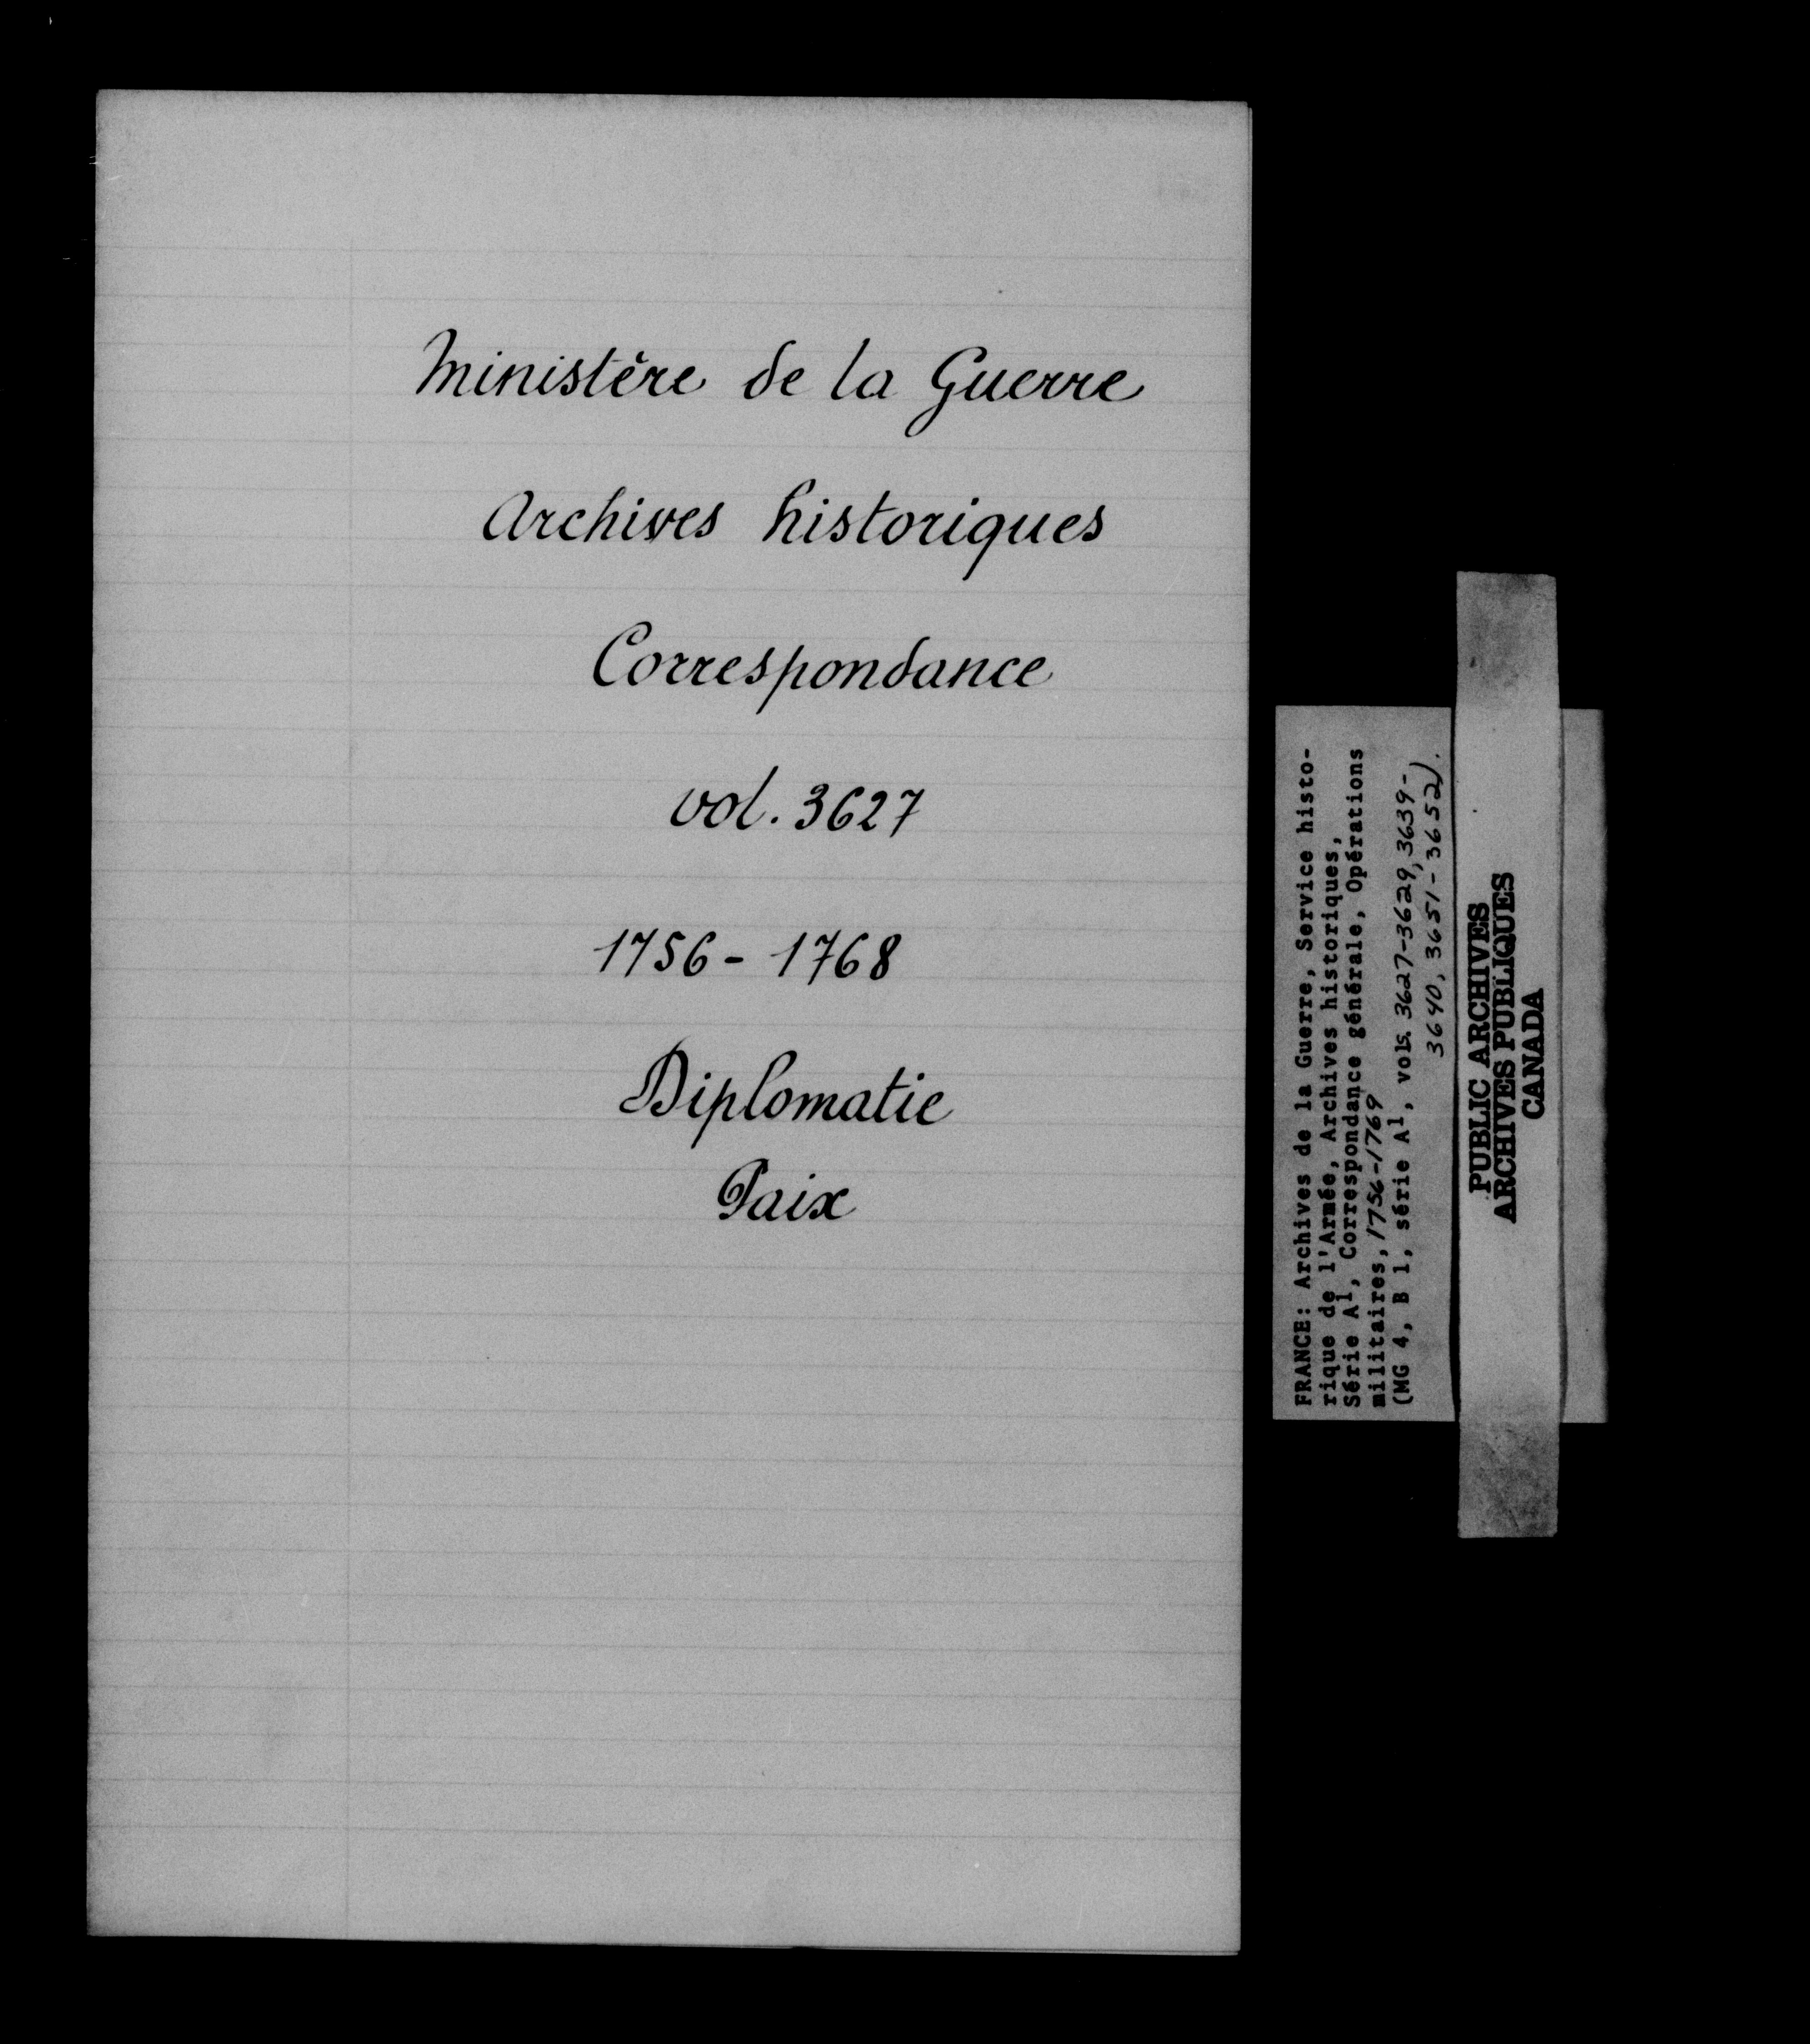 Ministère de la Guerre
Archives historiques
Correspondance
vol. 3627
1756 - 1768
Diplomatie
Paix
FRANCE: Archives de la Guerre, Service histo-
rique de l'Armée, Archives historiques,
Série A1, Correspondance générale, Opérations
militaires, 1756-1769
(MG 4, B 1, série A1, vols. 3627-3629, 3639-
3640, 3651-3652).
PUBLIC ARCHIVES
ARCHIVES PUBLIQUES
CANADA